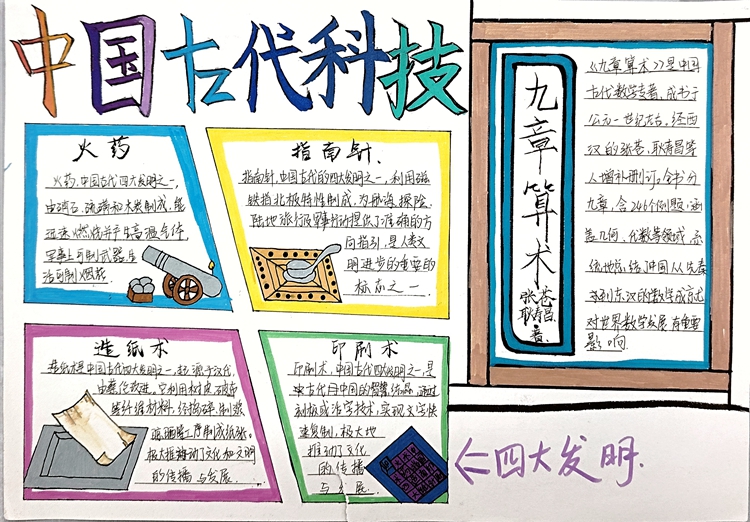 中国古代科技
火药
火药,中国古代四大发明之一,
由硝石、硫磺和木炭制成,能
迅速燃烧并产生高温气体,
军事上可制武器,生
活可制烟花.
指南针.
指南针,中国古代的四大发明之一,利用磁
铁指北极特性制成,为航海、探险、
陆地旅行及军事行动提供了准确的方
向指引,是人类文
明进步的重要的
标志之一.
造纸术
造纸术是中国古代四大发明之一,起源于汉代,
由蔡伦改进,它利用树皮、破布
等纤维材料,经捣碎、制浆
晒等工序制成纸张,
极大推动了文化和文明
的传播与发展.
印刷术
印刷术,中国古代四大发明之一,是
古代中国的智慧结晶,通过
刻板或活字技术,实现文字快
速复制,极大地
推动了文化
的传播
与发展.
九章算术
张苍
耿寿昌
著.
《九章算术》是中国
古代数学专著,成书于
公元一世纪左右,经西
汉的张苍、耿寿昌等
人增补删订,全书分
九章,含246个例题,涵
盖几何、代数等领域,系
统地总结了中国从先秦
到东汉的数学成就
对世界数学发展有重要
影响.
⇐四大发明.